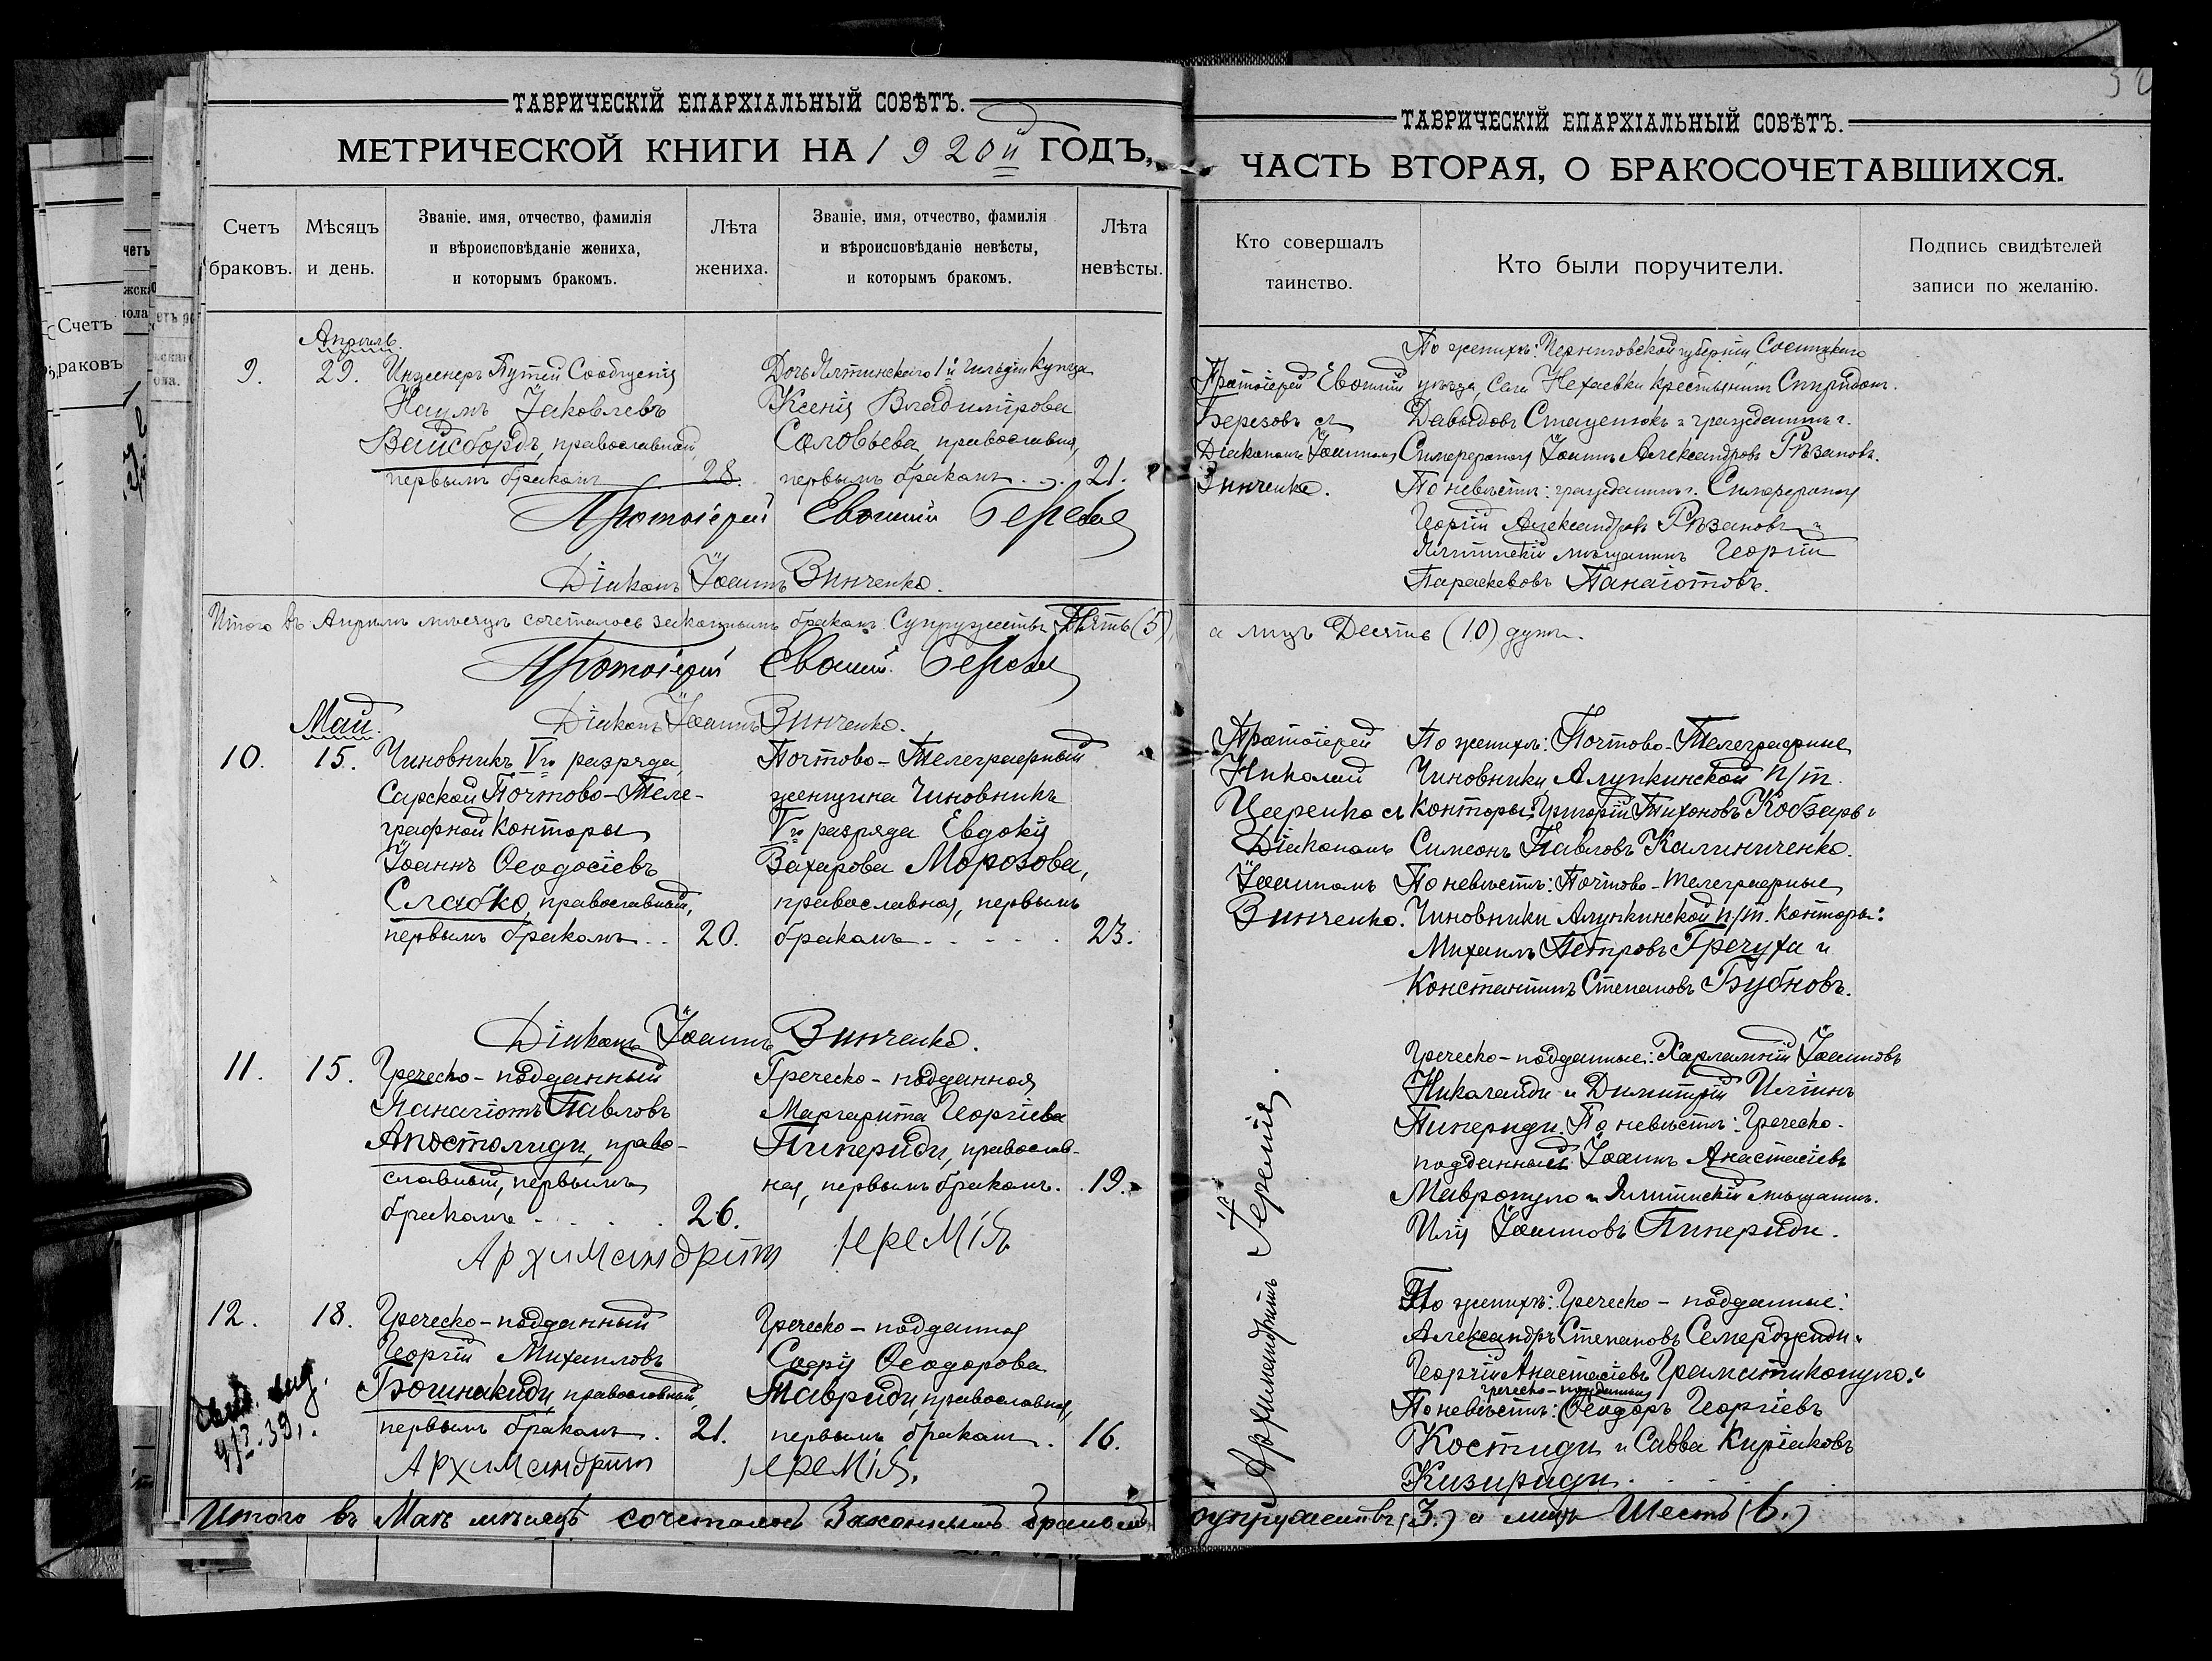 ТАВРИЧЕСКІЙ ЕПАРХІАЛЬНЫЙ СОВѢТЪ.
МЕТРИЧЕСКОЙ КНИГИ НА 1920й ГОДЪ,
Счетъ браковъ.
Мѣсяцъ и день.
Званіе. имя, отчество, фамилія
и вѣроисповѣданіе жениха,
и которымъ бракомъ.
Лѣта
жениха.
Званіе, имя, отчество, фамилія
и вѣроисповѣданіе невѣсты,
и которымъ бракомъ.
Лѣта
невѣсты.
Апрѣль.
9.
29.
Инженеръ Путей Сообщенія
Наумъ Іаковлевъ
Вайсбордъ, православный,
первымъ бракомъ
28.
Дочь Ялтинскаго 1й гильдіи купца
Ксенія Владимірова
Соловьева, православная,
первымъ бракомъ . . .
21.
Протоіерей Евѳимій
Діаконъ Іоаннъ Винченко.
Итого въ Апрѣлѣ мѣсяцѣ сочеталось законнымъ бракомъ Супружествъ Пять (5),
Протоіерей Евѳимій
Діаконъ Іоаннъ Винченко.
Май.
10.
15.
Чиновникъ Vго разряда
Сарской Почтово-Теле-
графной конторы
Іоаннъ Ѳеодосіевъ
Слабко, православный,
первымъ бракомъ . .
20.
Почтово-Телеграфный
женщина Чиновникъ
Vго разряда Евдокія
Захарова Морозова,
православная, первымъ
бракомъ . . . . .
23.
Діаконъ Іоаннъ Винченко.
11.
15.
Греческо-подданный
Панагіотъ Павловъ
Апостолиди, право-
славный, первымъ
бракомъ . . . .
26.
Греческо-подданная
Маргарита Георгіева
Пипериди, православ-
ная, первымъ бракомъ. .
19.
Архимандритъ Іеремія
12.
18.
Греческо-подданный
Георгій Михаиловъ
Бошнакиди, православный,
первымъ бракомъ .
21.
Греческо-подданная
Софія Ѳеодорова
Тавриди, православная,
первымъ бракомъ .
16.
Архимандритъ Іеремія.
Итого въ Маѣ мѣсяцѣ сочеталось Законнымъ бракомъ
ТАВРИЧЕСКІЙ ЕПАРХІАЛЬНЫЙ СОВѢТЪ.
ЧАСТЬ ВТОРАЯ, О БРАКОСОЧЕТАВШИХСЯ.
Кто совершалъ
таинство.
Кто были поручители.
Подпись свидѣтелей
записи по желанію.
Протоіерей Евѳимій
Березовъ съ
Діакономъ Іоанномъ
Винченко.
По женихѣ: Черниговской губерніи, Сосницкаго
уѣзда, села Нехаевки крестьянинъ Спиридонъ
Давыдовъ Стаценюкъ и гражданинъ г.
Симферополя Іоаннъ Александровъ Рѣзановъ.
По невѣстѣ: гражданинъ г. Симферополя
Георгій Александровъ Рѣзановъ и
Ялтинскій мѣщанинъ Георгій
Параскевовъ Панаіотовъ.
а лицъ Десять (10) душъ.
Протоіерей
Николай
съ
Діакономъ
Іоанномъ
Винченко.
По женихѣ: Почтово-Телеграфные
Чиновники Алупкинской п/т.
конторы: Григорій Тихоновъ Кобзарь и
Симеонъ Павловъ Калиниченко.
По невѣстѣ: Почтово-телеграфные
Чиновники Алупкинской п/т. конторы:
Михаилъ Петровъ Гречуха и
Константинъ Степановъ Бубновъ.
Архимандритъ Іеремія.
Греческо-подданные: Харлампій Іоанновъ
Николаиди и Димитрій Иліинъ
Пипериди. По невѣстѣ: Греческо-
подданный Іоаннъ Анастасіевъ
Мавропуло и Ялтинскій мѣщанинъ
Илія Іоанновъ Пипериди.
По женихѣ: Греческо-подданные:
Александръ Степановъ Семерджиди и
Георгій Анастасіевъ Граматикопуло.
греческо-подданные
По невѣстѣ: Ѳеодоръ Георгіевъ
Костиди и Савва Киріаковъ
Кизириди . . . .
супружествъ (3.) а лицъ Шесть (6.)